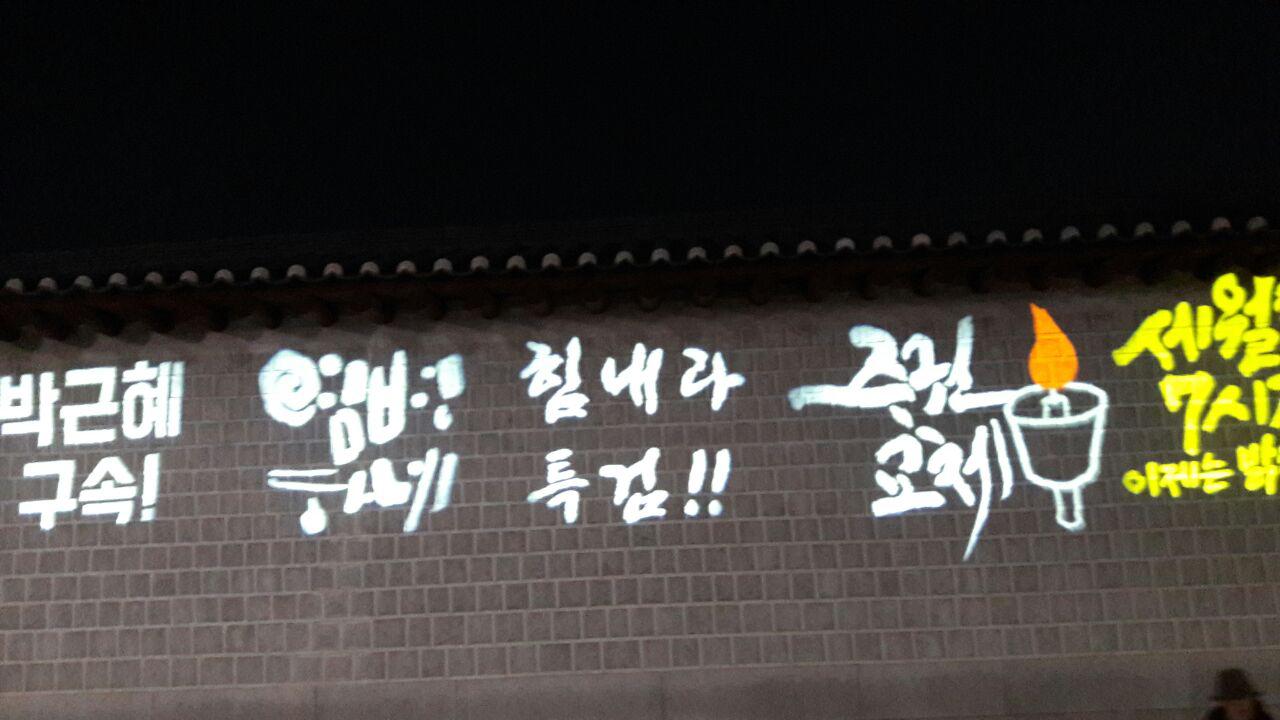 박근혜
구속!
염병!
하네
힘내라
특검!!
주권
교체
세월
7시
이제는